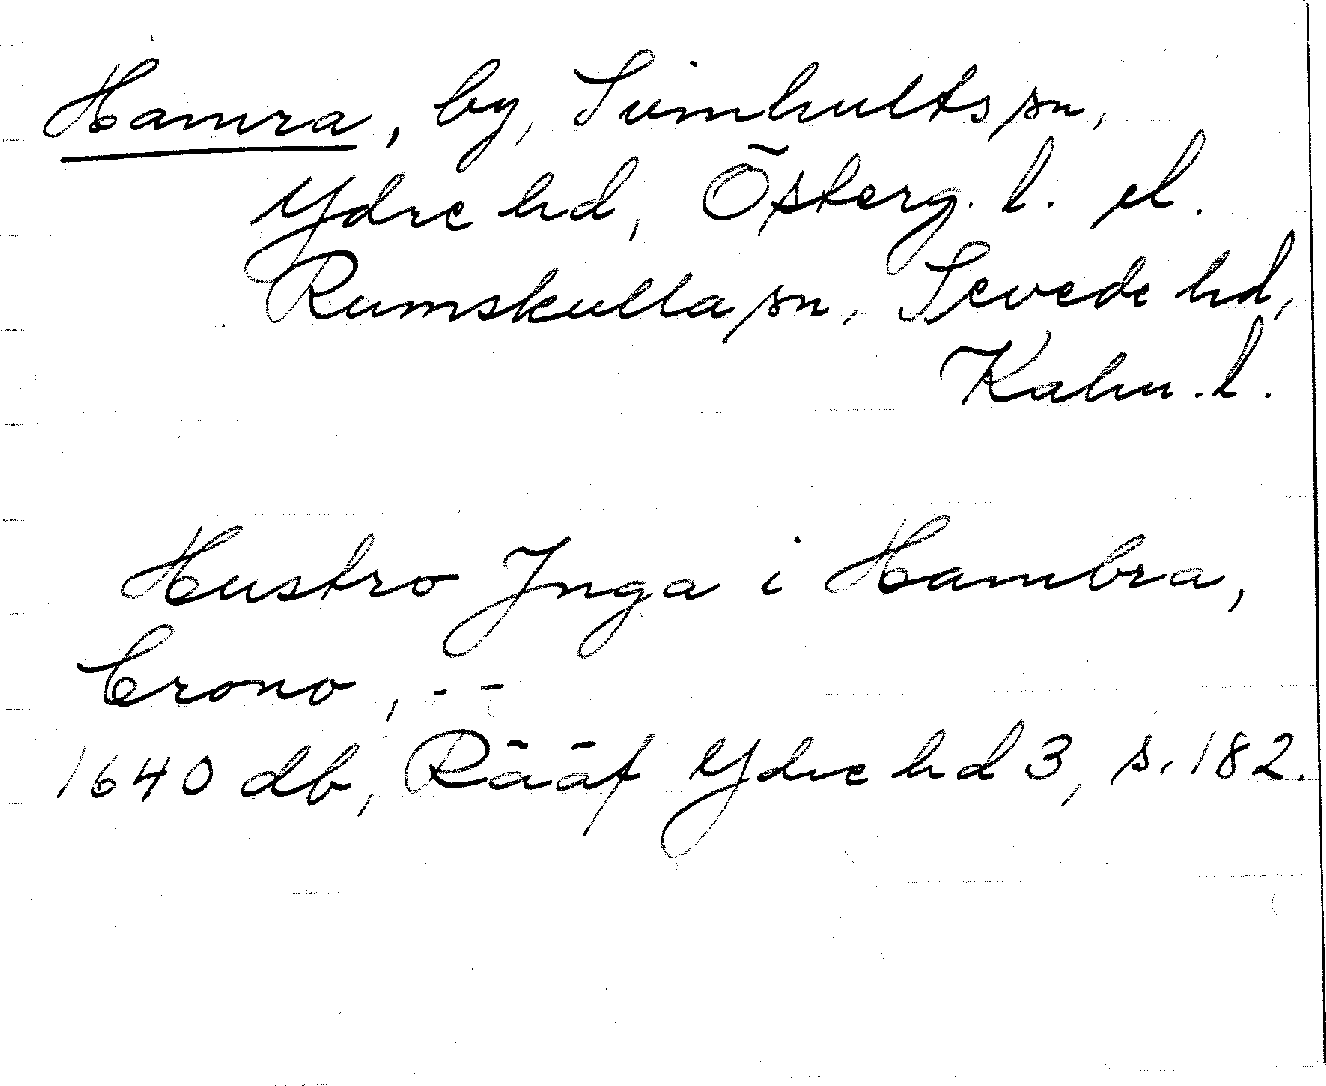 Hamra, by, Svinhults sn,
Ydre hd, Österg. l. el.
Rumskulla sn, Sevede hd,
Kalm. l.
Hustro Jnga i Hambra,
Crono, - -
1640 db, Rääf Ydre hd 3, s. 182.